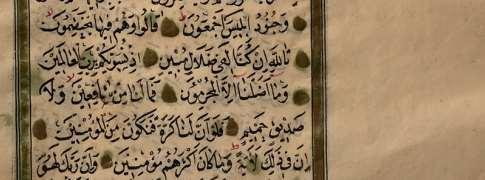 وجنود ابليس اجمعون قالوا وهم فيها يختصمون
تالله ان كنا لفى ضلال مبين اذ نسويكم برب العالمين
وما اضلنا الا المجرمون فما لنا من شافعين ولا
صديق حميم فلو ان لنا كرة فنكون من المؤمنين
ان فى ذلك لاية وما كان اكثرهم مؤمنين وان ربك لهو